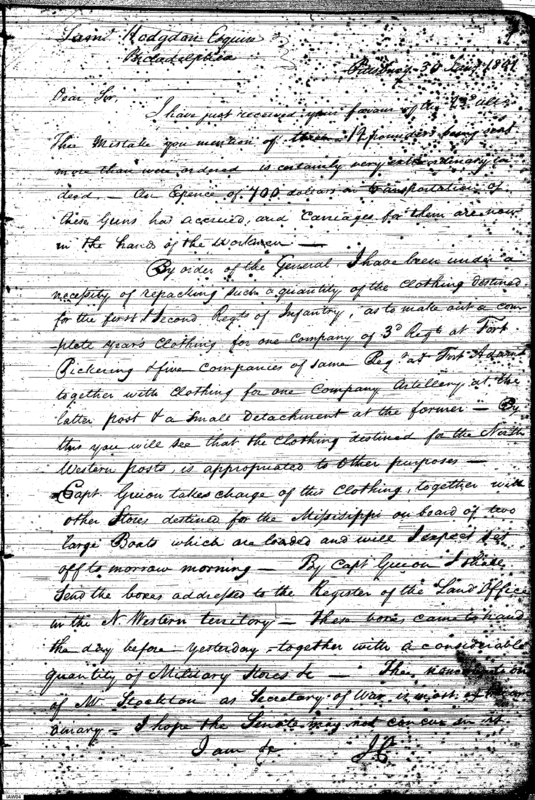 Saml Hodgdon Esquire
Philadelphia
Pittsburg 30 Jany 1801
Dear Sir,
I have just received your favour of the 23d ulto
The mistake you mention of three 12 pounders being sent
more than were ordered is certainly very extraordinary in
deed — An Epence of 700 dollars on transportation of
these Guns has accrued, and Carriages for them are now
in the hands of the workmen —
By order of the General I have been under a
necessity of repacking such a quantity of the Clothing destined
for the first & second Regts of Infantry, as to make out a com-
plete years Clothing for one company of 3d Regt at Fort
Pickering & five companies of same Regt at Fort Adams
together with Clothing for one Company Artillery at the
latter post & a small detachment at the former — By
this you will see that the Clothing destined for the North
Western posts, is appropriated to other purposes —
Capt. Guion takes charge of this Clothing, together with
other Stores destined for the Missisippi on board of two
large Boats which are loaded and will I expect set
off to morrow morning — By Capt Guion I shall
send the boxes addressed to the Register of the Land Office
in the N. Western territory — These boxes came to hand
the day before yesterday together with a considerable
quantity of Military Stores &c — The nomination
of Mr Stockton as Secretary of War is most
dinary — I hope the Senate may not concur in it
I am &c